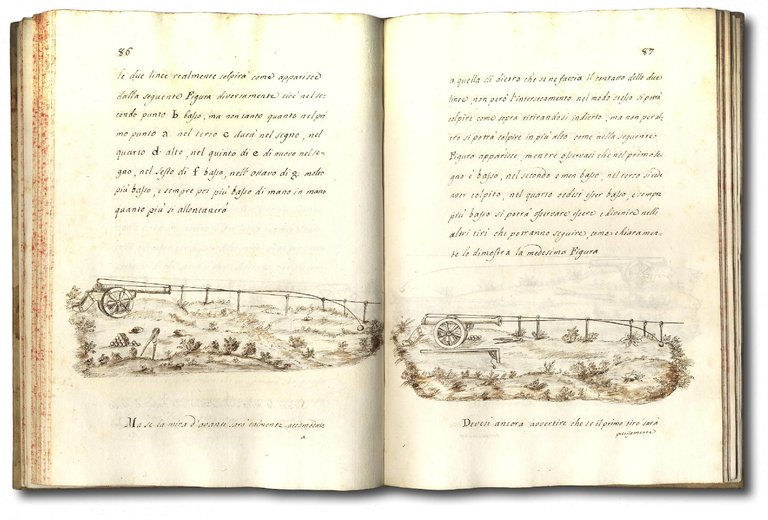 86
le due linee realmente colpirà come apparisce
dalla seguente Figura diversamente cioè nel se-
condo punto b. basso, ma non tanto quanto nel pri
mo punto a. nel terzo c darà nel segno, nel
quarto d. alto, nel quinto di e di nuovo nel se-
gno, nel sesto di f basso, nell'ottavo di g. molto
più basso, e sempre poi più basso di mano in mano
quanto più si allontanerà
Ma se la mira d'avanti sarà talmente accomodata
a
87
a quella di dietro che se ne faccia il contatto delle due
linee non però l'intersecamento nel modo stesso si potrà
colpire come sopra ritirandosi indietro, ma non perd.
rò si potrà colpire in più alto come nella seguente
Figura apparisce, mentre osservasi che nel primo se-
gno è basso, nel secondo e men basso, nel terzo si vede
aver colpito, nel quarto vedesi esser basso, e sempre
più basso si potrà osservare essere e divenire nelli
altri tiri che potranno seguire come chiaramen-
te lo dimostra la medesima Figura
Devesi ancora avvertire che se il primo tiro sarà